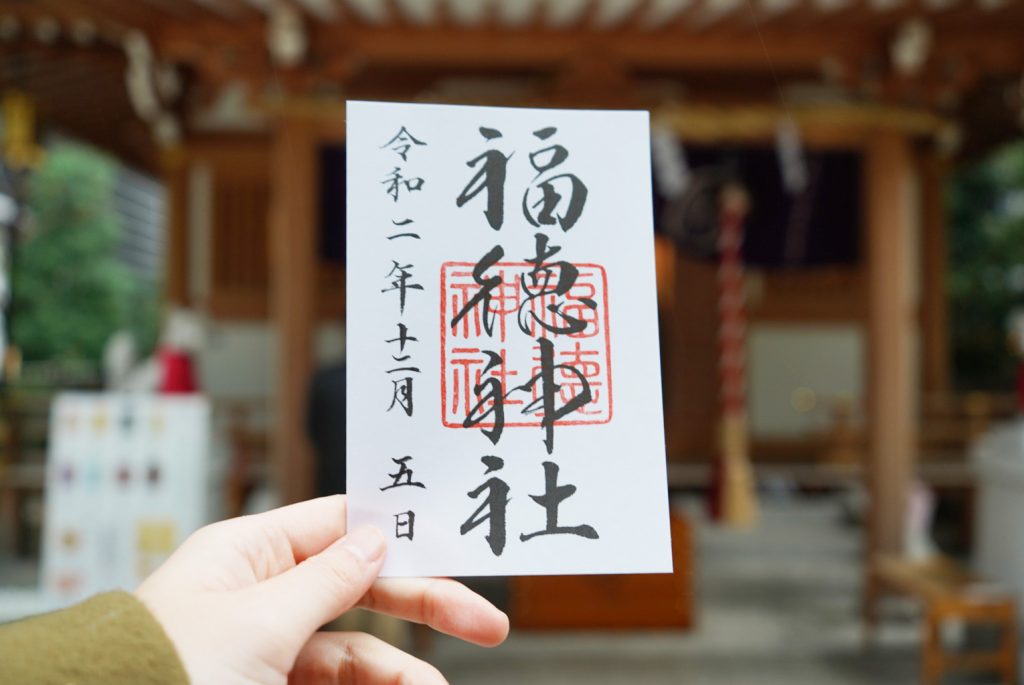 福徳神社
令和二年十二月五日
福徳
神社